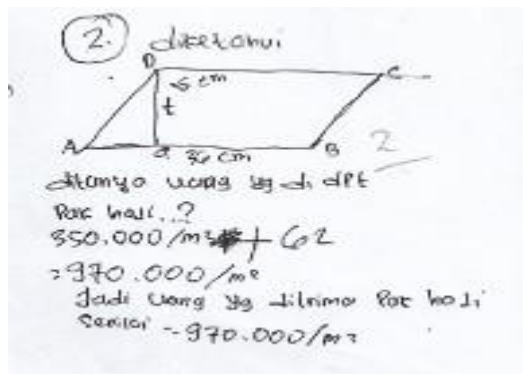 2. diketahui
D
C
t
A
B
2
ditanya uang yg di dpt
Pak hadi..?
350.000/m²
= 970.000/m²
Jadi uang yg ditrima Pak hadi
970.000/m²